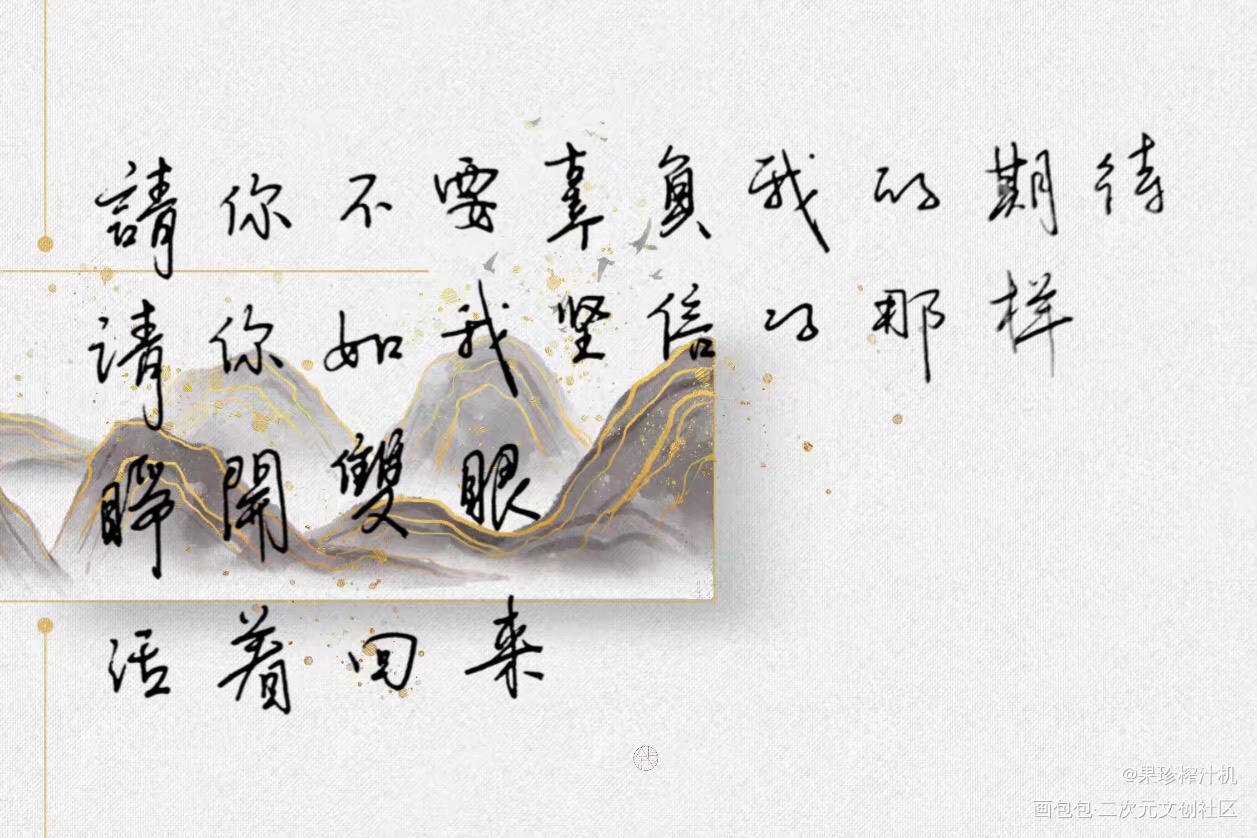 請你不要辜負我的期待
请你如我坚信的那样
睜開雙眼
活着回来
@果珍榨汁机
画包包·二次元文创社区